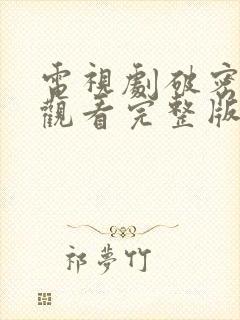 電視劇破密
觀看完整版
祁夢竹